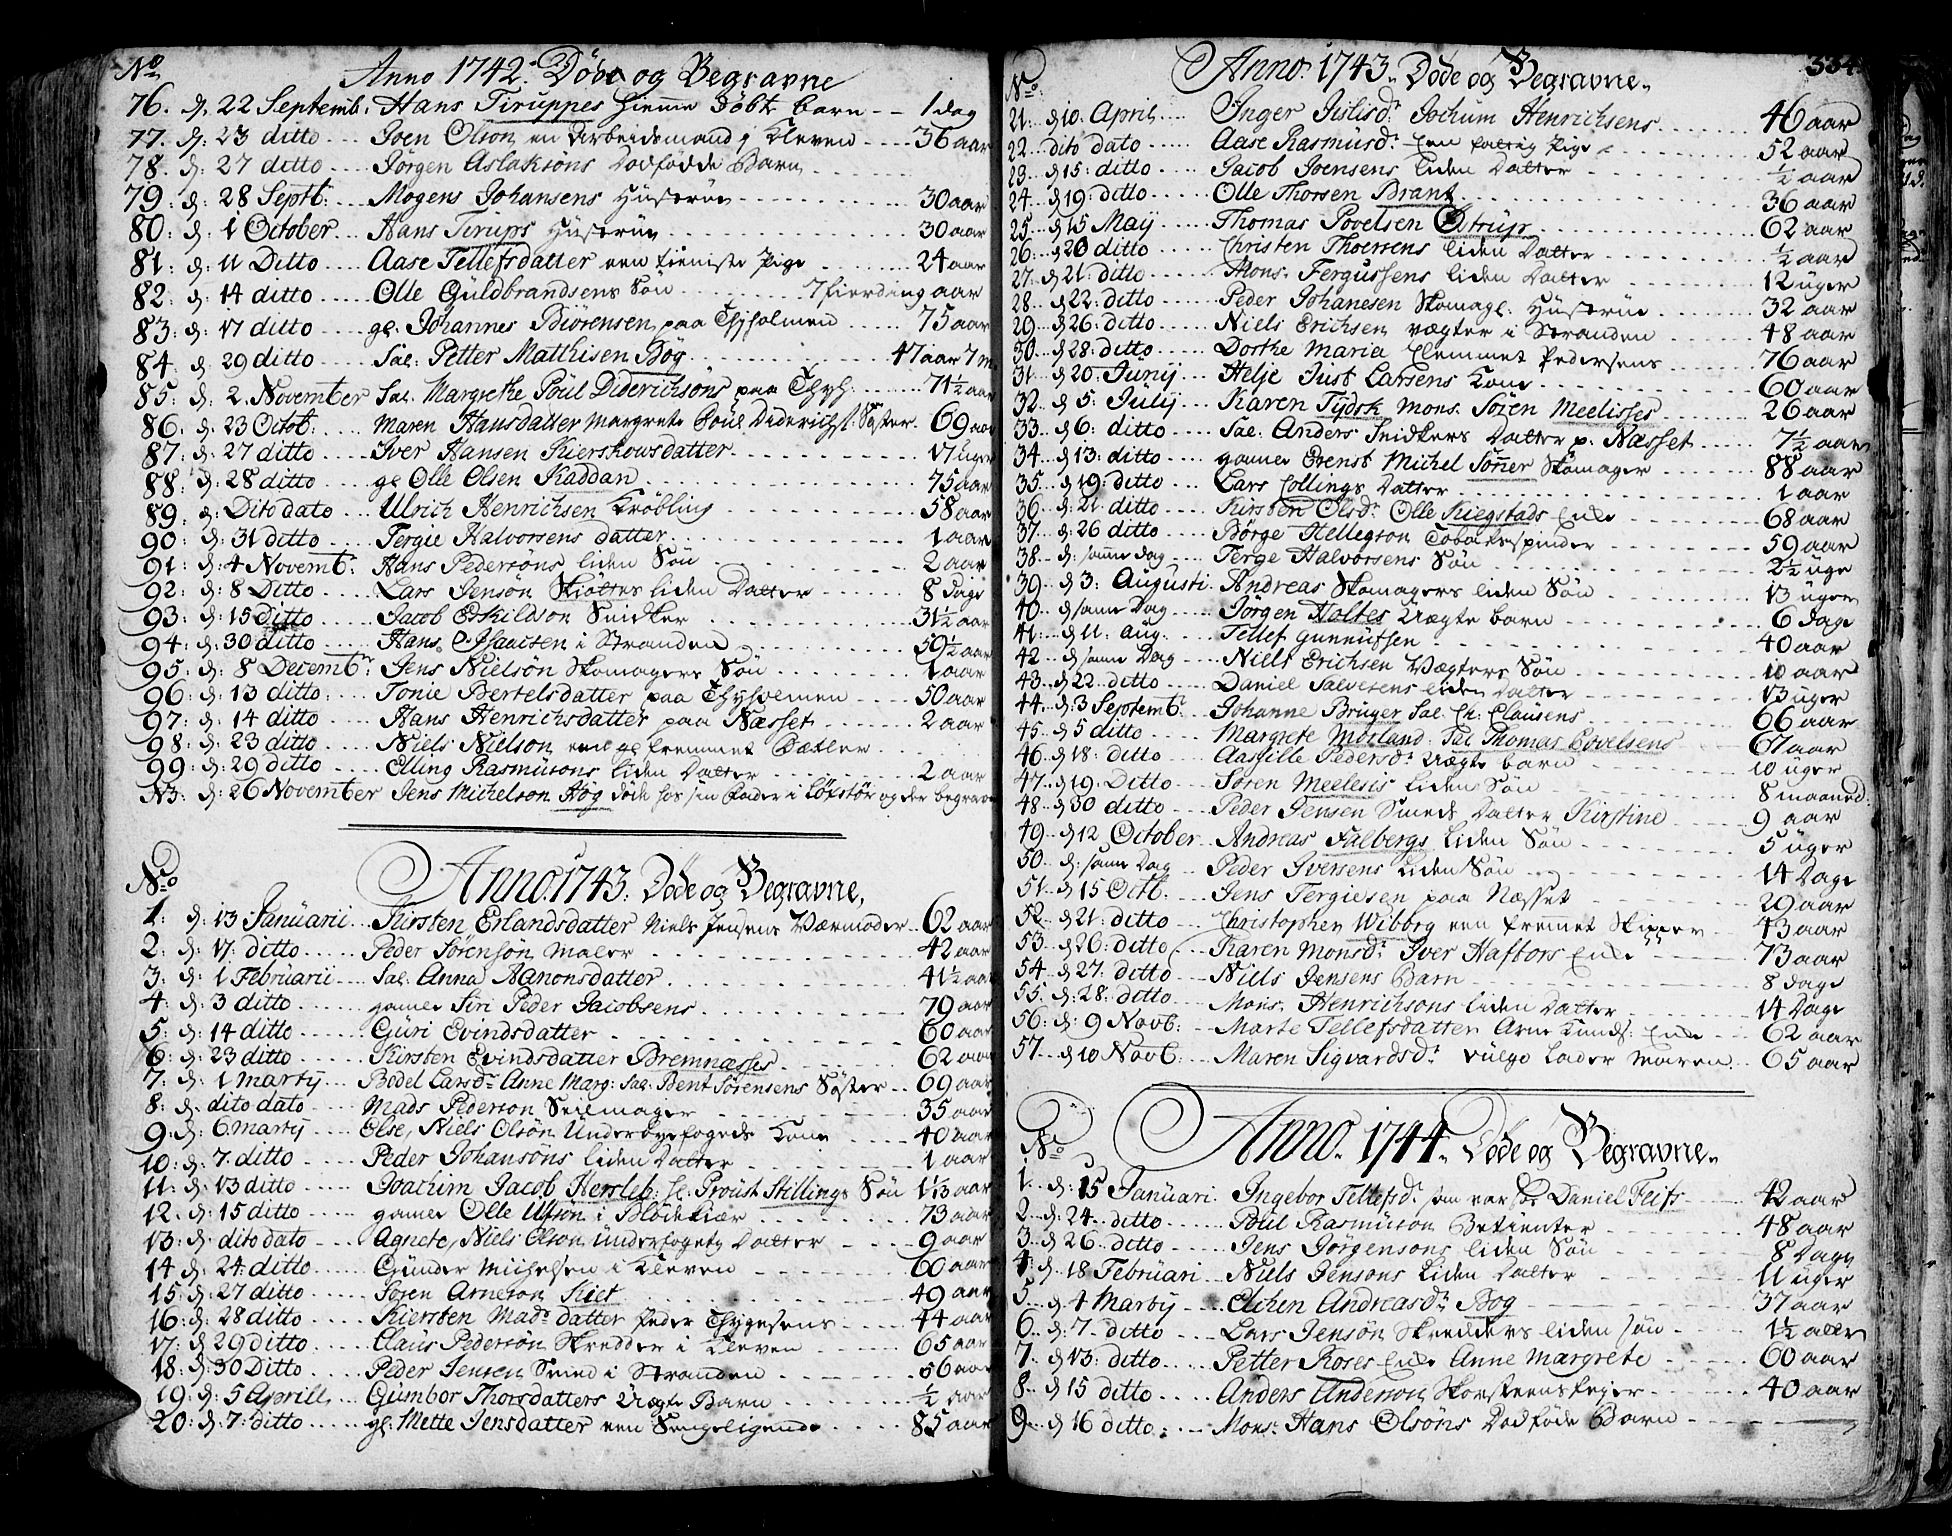 No Anno 1742. Døde og Begravne
76. d. 22 Septemb: Hans Tiruppes hiemme døbt barn -- 1 dag
77. d: 23 ditto .... Joen Olson en Arbeidsmand i Kleven --- 36 aar
78. d: 27 ditto .... Jörgen Aslaksöns Dødfødde Barn
79. d: 28 Septb: ... Mogens Johansens Hustrue ... 30 aar
80: d: 1 October ... Hans Tirups Hustrue ... 30 aar
81: d: 11 Ditto .... Aase Tellefsdatter een tieniste Pige ... 24 aar
82: d: 14 ditto ..... Olle Guldbrandsens Sön ... 7 fierding aar
83: d: 17 ditto .... gl: Johannes Biörensen paa Thyholmen ... 75 aar
84: d: 29 ditto .... Sal: Petter Matthisen Bög ... 47 aar 7 m
85: d: 2. November Sal. Margrethe Poul Diderichsöns paa Thyh: ... 71½ aar
86: d: 23 Octob: .... Maren Hansdatter Margrete Poul Diderichs: Söster. 69 aar
87: d: 27 ditto .... Iver Hansen Kierskowsdatter ... 17 uger
88: d: 28 ditto .... gl Olle Olsen Kaddan ... 75 aar
89: d: Dito dato .... Ulrich Henrichsen Kröbling ... 58 aar
90: d: 31 ditto .... Tergie Halvorsens datter ... 1 aar
91: d: 4 Novemb: Hans Pedersöns liden Sön ... 2 aar
92: d: 8 Ditto .... Lars Jensön Skiöttes liden Datter ... 8 dage
93: d: 15 Ditto .... Jacob Eskildson Snidker ... 31½ aar
94: d: 30 ditto .... Hans Isaacsen i Stranden ... 59½ aar
95: d: 8 Decembr: Jens Nielsön Skomagers Sön ... 1 aar
96: d: 13 ditto .... Tonie Bertelsdatter paa Thyholmen ... 50 aar
97: d: 14 ditto .... Hans Henrichsdatter paa Næsset ... 2 aar
98: d: 23 ditto .... Niels Nielson een gl fremmet Betler
99: d: 29 ditto .... Elling Rasmusons liden Datter ... 2 aar
N3: d: 26 November Jens Michelson Hög døde hos sin Fader i Löfstör og der begrave
No Anno 1743. Døde og Begravne,
1. d: 13 Januarii ... Kirsten Erlandsdatter Niels Jensens Værmoder .. 62 aar
2: d: 17: ditto .... Peder Sörensön Maler ... 42 aar
3: d: 1 Februarii .... Sal. Anna Aanonsdatter ... 41½ aar
4: d: 3 ditto .... gamel Siri Peder Jacobsens ... 79 aar
5: d: 14 ditto .... Guri Evindsdatter ... 60 aar
6: d: 23 ditto .... Kirsten Evindsdatter Bremnæsses ... 62 aar
7: d: 1 Martij .... Bodel Larsdr. Anne Marg: Sal: Bent Sörensens Söster .. 69 aar
8: d: dito dato .... Mads Pederson Seilmager ... 35 aar
9: d: 6. Martij .... Else, Niels Olsön Underbyefogeds Kone ... 40 aar
10: d: 7. ditto .... Peder Johansöns liden Datter ... 1 aar
11: d: 13 ditto .... Joachim Jacob Hersleb: sl: Proust Stillings Sön 1⅓ aar
12. d: 15 ditto .... gamel Olle Ulfson i Blödekiær ... 73 aar
13: d: dito dato .... Agnete, Niels Olson Underfogets Datter ... 9 aar
14 d: 24. ditto .... Gunder Michelsen i Kleven ... 60 aar
15: d: 27 ditto .... Sören Arneson Kiet ... 49 aar
16: d: 28 ditto .... Kiersten Mads datter Peder Thygesens ... 44 aar
17: d: 29 ditto .... Claus Pedersön Skredder i Kleven ... 65 aar
18: d: 30 Ditto .... Peder Jensen Smed i Stranden ... 56 aar
19: d: 5 Aprill .... Gumbor Thorsdatters Uægte Barn ... ½ aar
20: d: 7: ditto .... gl. Mette Jensdatter een Sengeligende ... 85 aar
334.
No Anno. 1743. Døde og Begravne.
21: d 10. April .... Inger Jislisdr. Jochum Henrichsens ... 46 aar
22. dito dato .... Aase Rasmusdr. een fattig Pige ... 52 aar
23. d 15: ditto .... Jacob Joensens liden Datter ... ½ aar
24. d 19: ditto .... Olle Thorsen Brant ... 36 aar
25: d 15 Maij .... Thomas Povelsen Østrup ... 62 aar
26: d 20 ditto .... Christen Thoersens liden Datter ... ½ aar
27. d 21. ditto .... Mons: Fergussens liden Datter ... 12 uger
28. d 22: ditto .... Peder Johanesen Skomag: Hustrue ... 32 aar
29. d 26: ditto .... Niels Erichsen vægter i Stranden ... 48 aar
30. d 28: ditto .... Dorthe Maria Clemmet Pedersens ... 76 aar
31. d 20. Junij .... Helje Just Larsens Kone ... 60 aar
32. d 5: Julij .... Karen Tydsk Mons. Sören Meelisses ... 26 aar
33. d 6: ditto .... Sal: Anders Snidkers Datter p: Næsset ... 7½ aar
34. d 13: ditto .... gamel Ernst Michel Sönner Skomager ... 88 aar
35. d 19: ditto .... Lars Collings Datter ... 1 aar
36. d: 21 ditto .... Kirsten Olsdr. Olle Kiegstads Enke ... 68 aar
37. d 26 ditto .... Börge Hellegson Tobakspinder ... 59 aar
38. d: samme dag .... Terge Halvorsens Sön ... 2½ uge
39. d 3: Augusti. Andreas Skomagers liden Sön ... 13 uger
40. d samme Dag .... Jörgen Holtes Uægte barn ... 6 Dage
41. d 11: Aug: .... Tellef Gunnufsen ... 40 aar
42. d samme Dag ... Niels Erichsen Vægters Sön ... 10 aar
43. d 22.. ditto .... Daniel Salvesens liden Datter ... 13 uger
44: d: 3 Septembr: Johanne Bruger Sal. Ch: Clausens ... 66 aar
45. d 5 ditto .... Margrete Morland Sal Thomas Povelsens ... 61 aar
46. d 18: ditto .... Aasille Pedersdr. Uægte barn ... 10 uger
47. d 19. Ditto .... Sören Meelesis liden Sön ... 8 maaned:
48. d 30 ditto .... Peder Jensen Smeds Datter Kirstine ... 9 aar
49. d 12 October .. Andreas Falbergs liden Sön ... 5 uger
50... d: samme Dag ... Peder Iversens Liden Sön ... 14 Dage
51... d 15 Octb: .... Jens Tergiesen paa Næsset ... 29 aar
52. d 21: ditto .... Christopher Wiborg een fremmet Skipper ... 43 aar
53. d 26: ditto .... Karen Monsdr. Iver Haftors Enke ... 73 aar
54. d 27: ditto .... Niels Jensens Barn ... 8 dage
55. d: 28. ditto .... Mons. Henrichsons liden Datter ... 14 Dage
56: d: 9 Novb: .... Marte Tellefsdatter Arne Knuds: Enke ... 62 aar
57... d 10 Novb: .... Maren Sigvardsdr. vulgo Lader Maren ... 65 aar
No Anno. 1744. Døde og Begravne.
1. d: 15 Januari. Ingebor Tellefsdr. som var hos Daniel Feifs ... 42 aar
2. d: 24.. ditto .... Poul Rasmuson Betienter ... 48 aar
3. d 26.. ditto .... Jens Jörgensons liden Sön ... 8 Dage
4. d. 18 Februari .. Niels Jensons Liden Datter ... 11 uger
5. d 4 Martij .... Elchen Andreasdr. Bog ... 37 aar
6. d: 7. ditto .... Lars Jensön Skredders liden sön ... 1½ aar
7. d 13: ditto .... Petter Roses Enke Anne Margrete ... 60 aar
8. d 15 ditto .... Anders Anderson Skorsteensfejer ... 40 aar
9. d 16 ditto .... Mons: Hans Olsöns Dodföde Barn